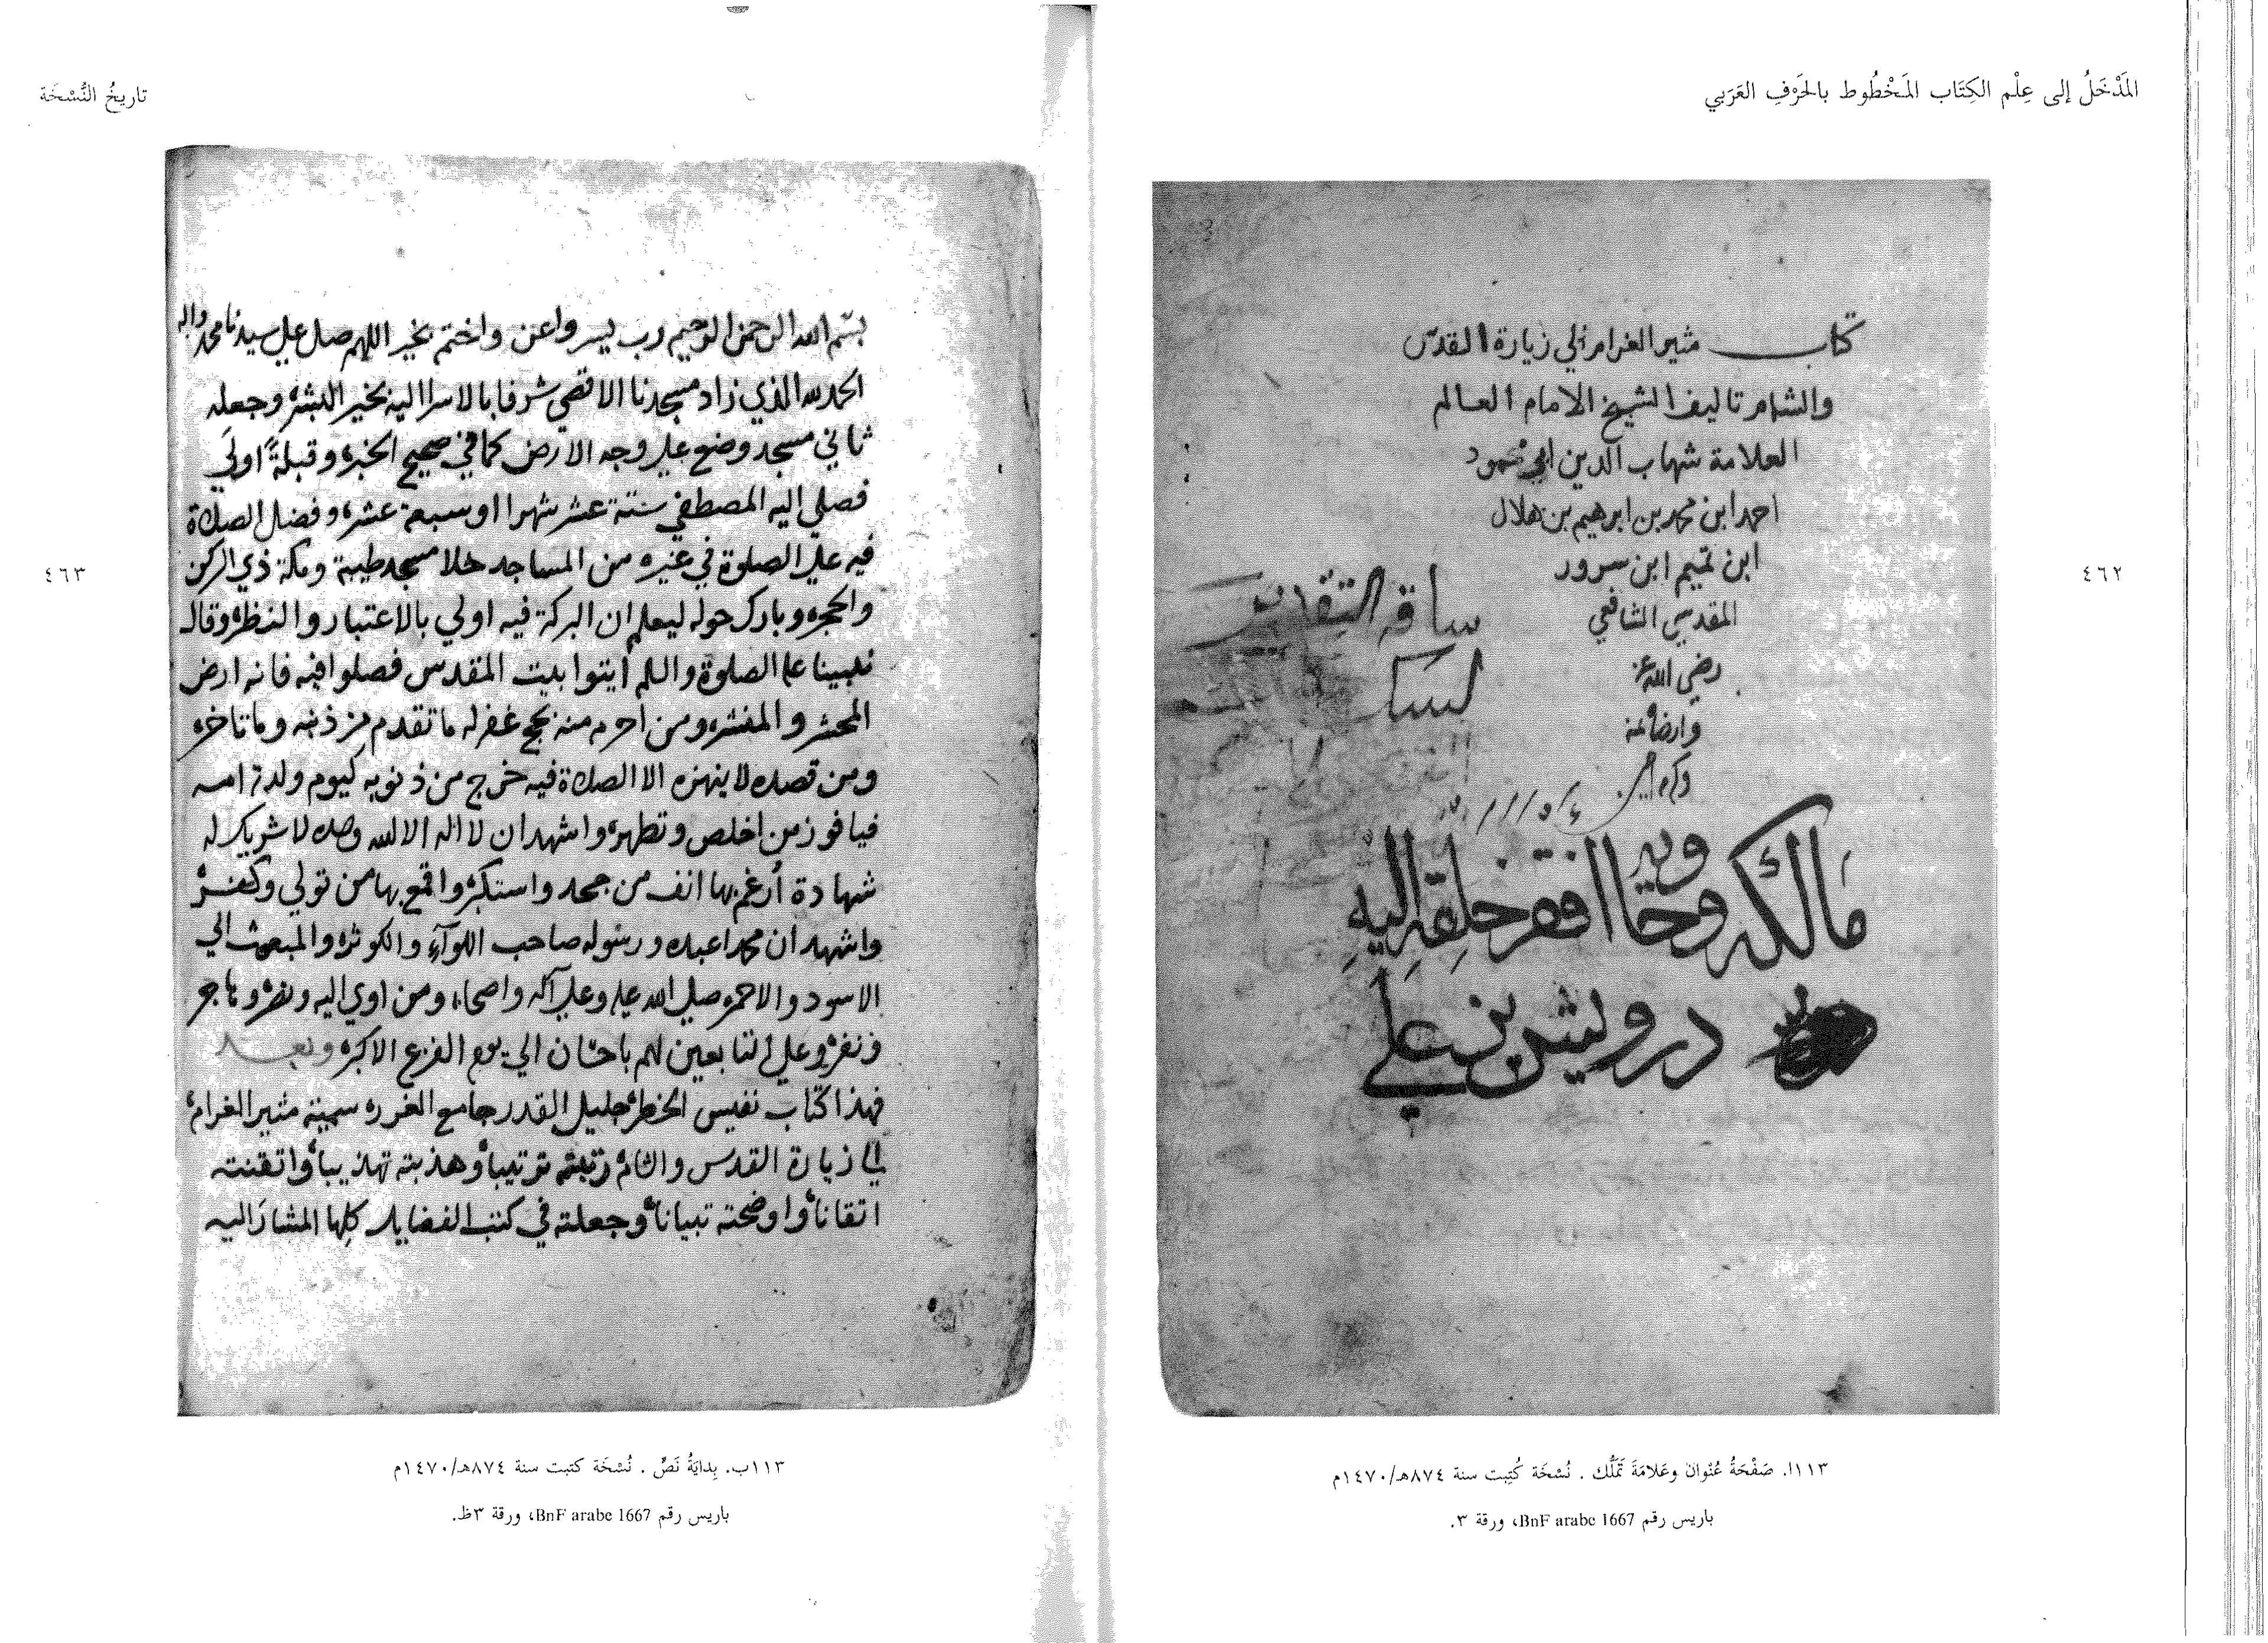 المَدْخَلُ إلى عِلْم الكِتَاب المَخْطُوط بالحَرْفِ العَرَبي
كتاب مثير الغرام الي زيارة القدس
والشام تاليف الشيخ الامام العالم
العلامة شهاب الدين ابي محمود
احمد ابن محمد بن ابرهيم بن هلال
ابن تميم ابن سرور
المقدسي الشافعي
رضي الله عنه
وارضاه
ساقه التقدير
مالكه
افقر خلقه اليه
درويش بن علي
٤٦٢
١١٣ا. صَفْحَةُ عُنْوان وعَلامَة تَمَلُّك . نُسْخَة كُتِبت سنة ٨٧٤هـ/١٤٧٠م
باريس رقم BnF arabe 1667، ورقة ٣.
تاريخُ النُّسْخَة
بسم الله الرحمن الرحيم رب يسر واعن واختم بخير اللهم صل علي سيدنا محمد واله
الحمد لله الذي زاد مسجدنا الاقصي شرفا بالاسرا اليه بخير البشر وجعله
ثاني مسجد وضع علي وجه الارض كما في صحيح الخبر وقبلةً اولَي
فصلي اليه المصطفي ستة عشر شهرا او سبعة عشر وفضل الصلاة
فيه علي الصلوة في غيره من المساجد خلا مسجد طيبة ومكة ذي الركن
والحجر وبارك حوله ليعلم ان البركة فيه اولي بالاعتبار والنظر وقال
نبينا عليه الصلوة والسلم ايتوا بيت المقدس فصلوا فيه فانه ارض
المحشر والمنشر ومن احرم منه بحج غفر له ما تقدم من ذنبه وما تاخر
ومن قصده لا ينهزه الا الصلاة فيه خرج من ذنوبه كيوم ولدته امه
فيا فوز من اخلص وتطهر واشهد ان لا اله الا الله وحده لا شريك له
شهادة أرغم بها انف من جحد واستكبر واقمع بها من تولي وكفر
واشهد ان محمدا عبده ورسوله صاحب اللوآء والكوثر والمبعوث الي
الاسود والاحمر صلي الله عليه وعلي آله واصحابه ومن اوي اليه ونصر وهاجر
ونفر وعلي التابعين لهم باحسان الي يوم الفزع الاكبر وبعد
فهذا كتاب نفيس الخطر جليل القدر جامع الغرر سميته مثير الغرام
الي زيارة القدس والشام رتبته ترتيباً وهذبته تهذيباً واتقنته
اتقاناً واوضحته تبياناً وجعلته في كتب الفضايل كلها المشار اليه
٤٦٣
١١٣ب. بِدايَةُ نَصّ . نُسْخَة كتبت سنة ٨٧٤هـ/١٤٧٠م
باريس رقم BnF arabe 1667، ورقة ٣ظ.